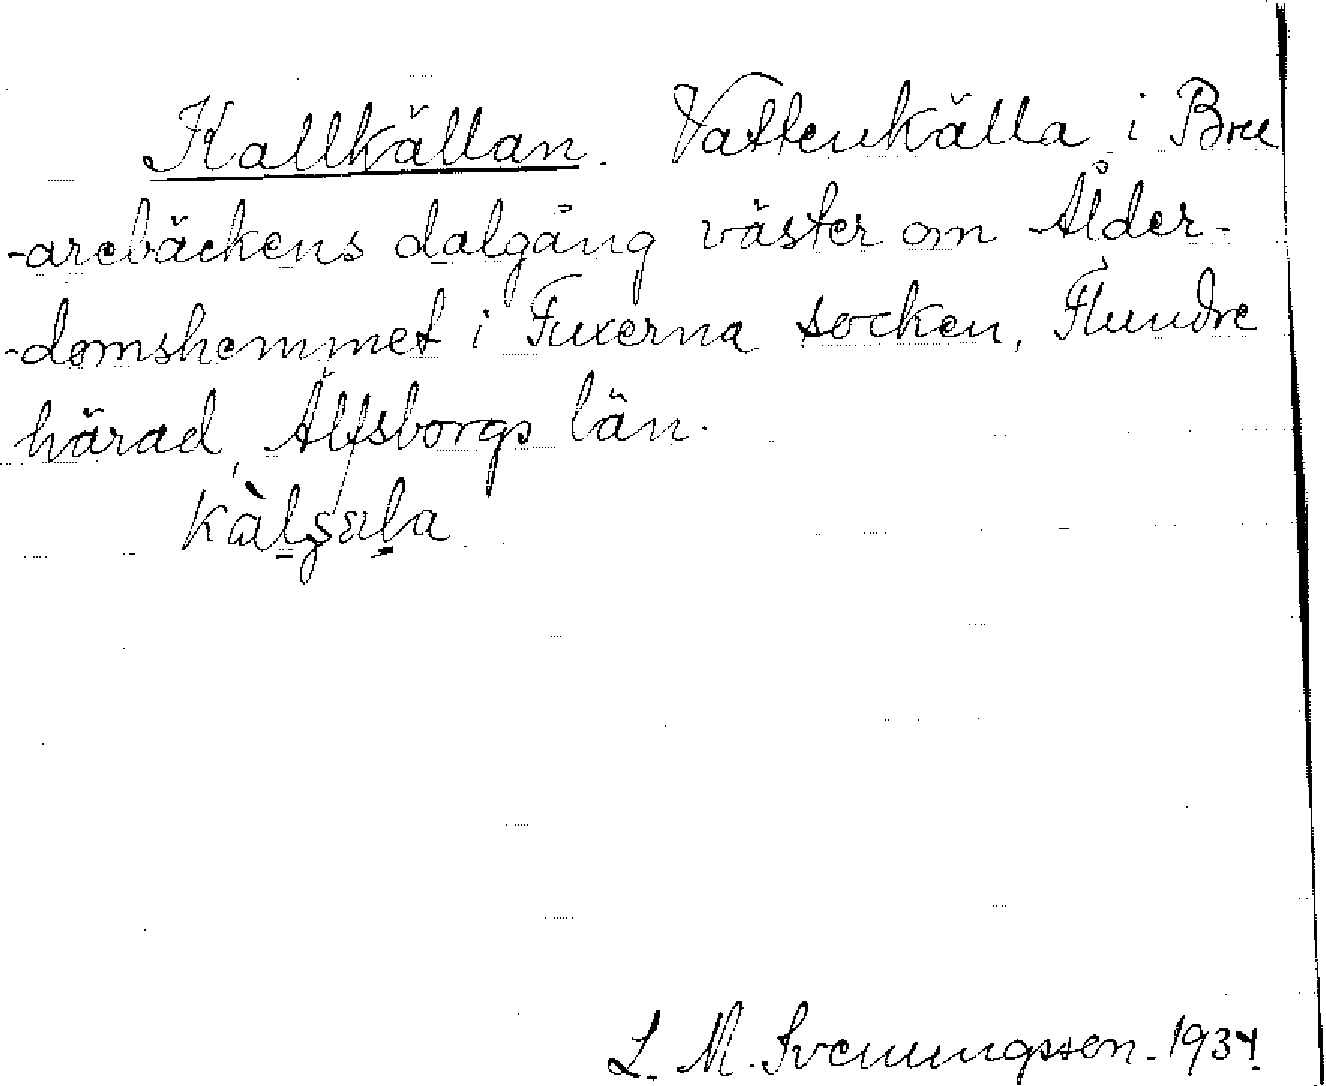 Kallkällan. Vattenkälla i Bru
-arebäckens dalgång väster om Ålder-
-domshemmet i Fuxerna socken, Flundre
härad, Älfsborgs län.
L. M. Svenungsson. 1934.